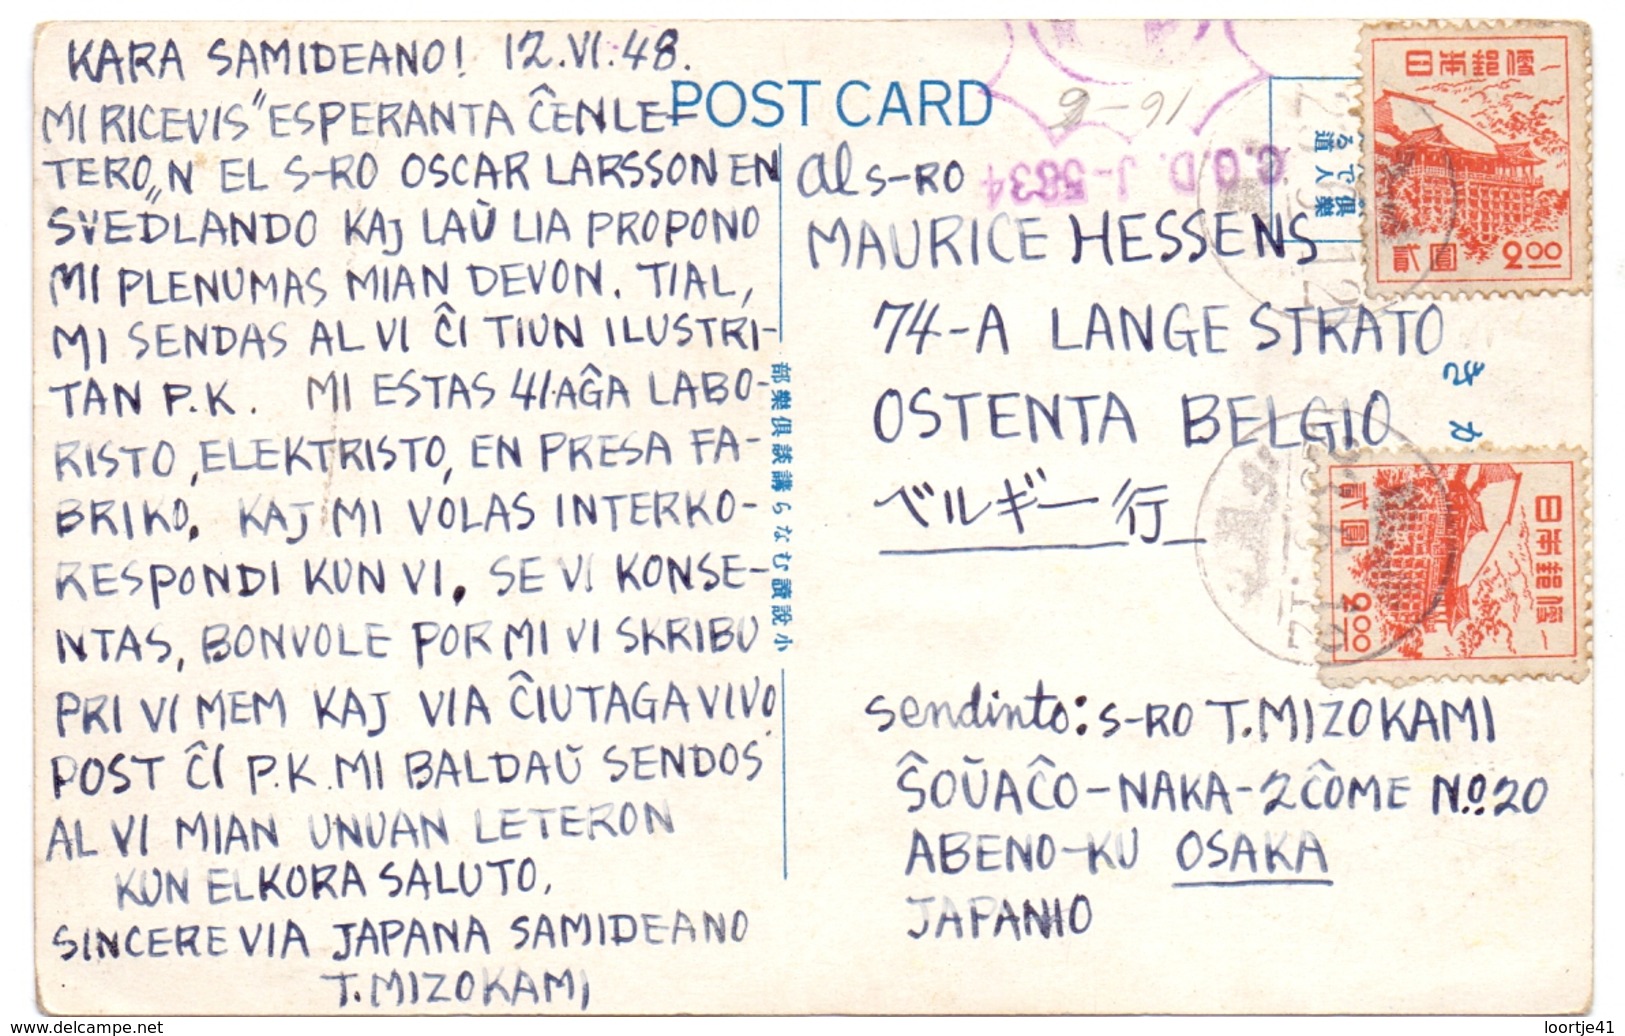 KARA SAMIDEANO! 12.VI.48.
MI RICEVIS "ESPERANTA ĈENLE-
TERO„N EL S-RO OSCAR LARSSON EN
SVEDLANDO KAJ LAŬ LIA PROPONO
MI PLENUMAS MIAN DEVON. TIAL,
MI SENDAS AL VI ĈI TIUN ILUSTRI-
TAN P.K. MI ESTAS 41-AĜA LABO-
RISTO, ELEKTRISTO, EN PRESA FA-
BRIKO, KAJ MI VOLAS INTERKO-
RESPONDI KUN VI. SE VI KONSE-
NTAS, BONVOLE POR MI VI SKRIBU
PRI VI MEM KAJ VIA ĈIUTAGA VIVO
POST ĈI P.K. MI BALDAŬ SENDOS
AL VI MIAN UNUAN LETERON
KUN ELKORA SALUTO,
SINCERE VIA JAPANA SAMIDEANO
T. MIZOKAMI
POST CARD
9-91
C.C.D. J-5634
小說讀むなら講談倶樂部
るで倶樂
道人
きが
日本郵便
貳圓
2.00
日本郵便
貳圓
2.00
Al S-RO
MAURICE HESSENS
74-A LANGE STRATO
OSTENTA BELGIO
ベルギー行
Sendinto: S-RO T. MIZOKAMI
ŜOŬAĈO-NAKA-2ĈOME No. 20
ABENO-KU OSAKA
JAPANIO
loortje41
www.delcampe.net